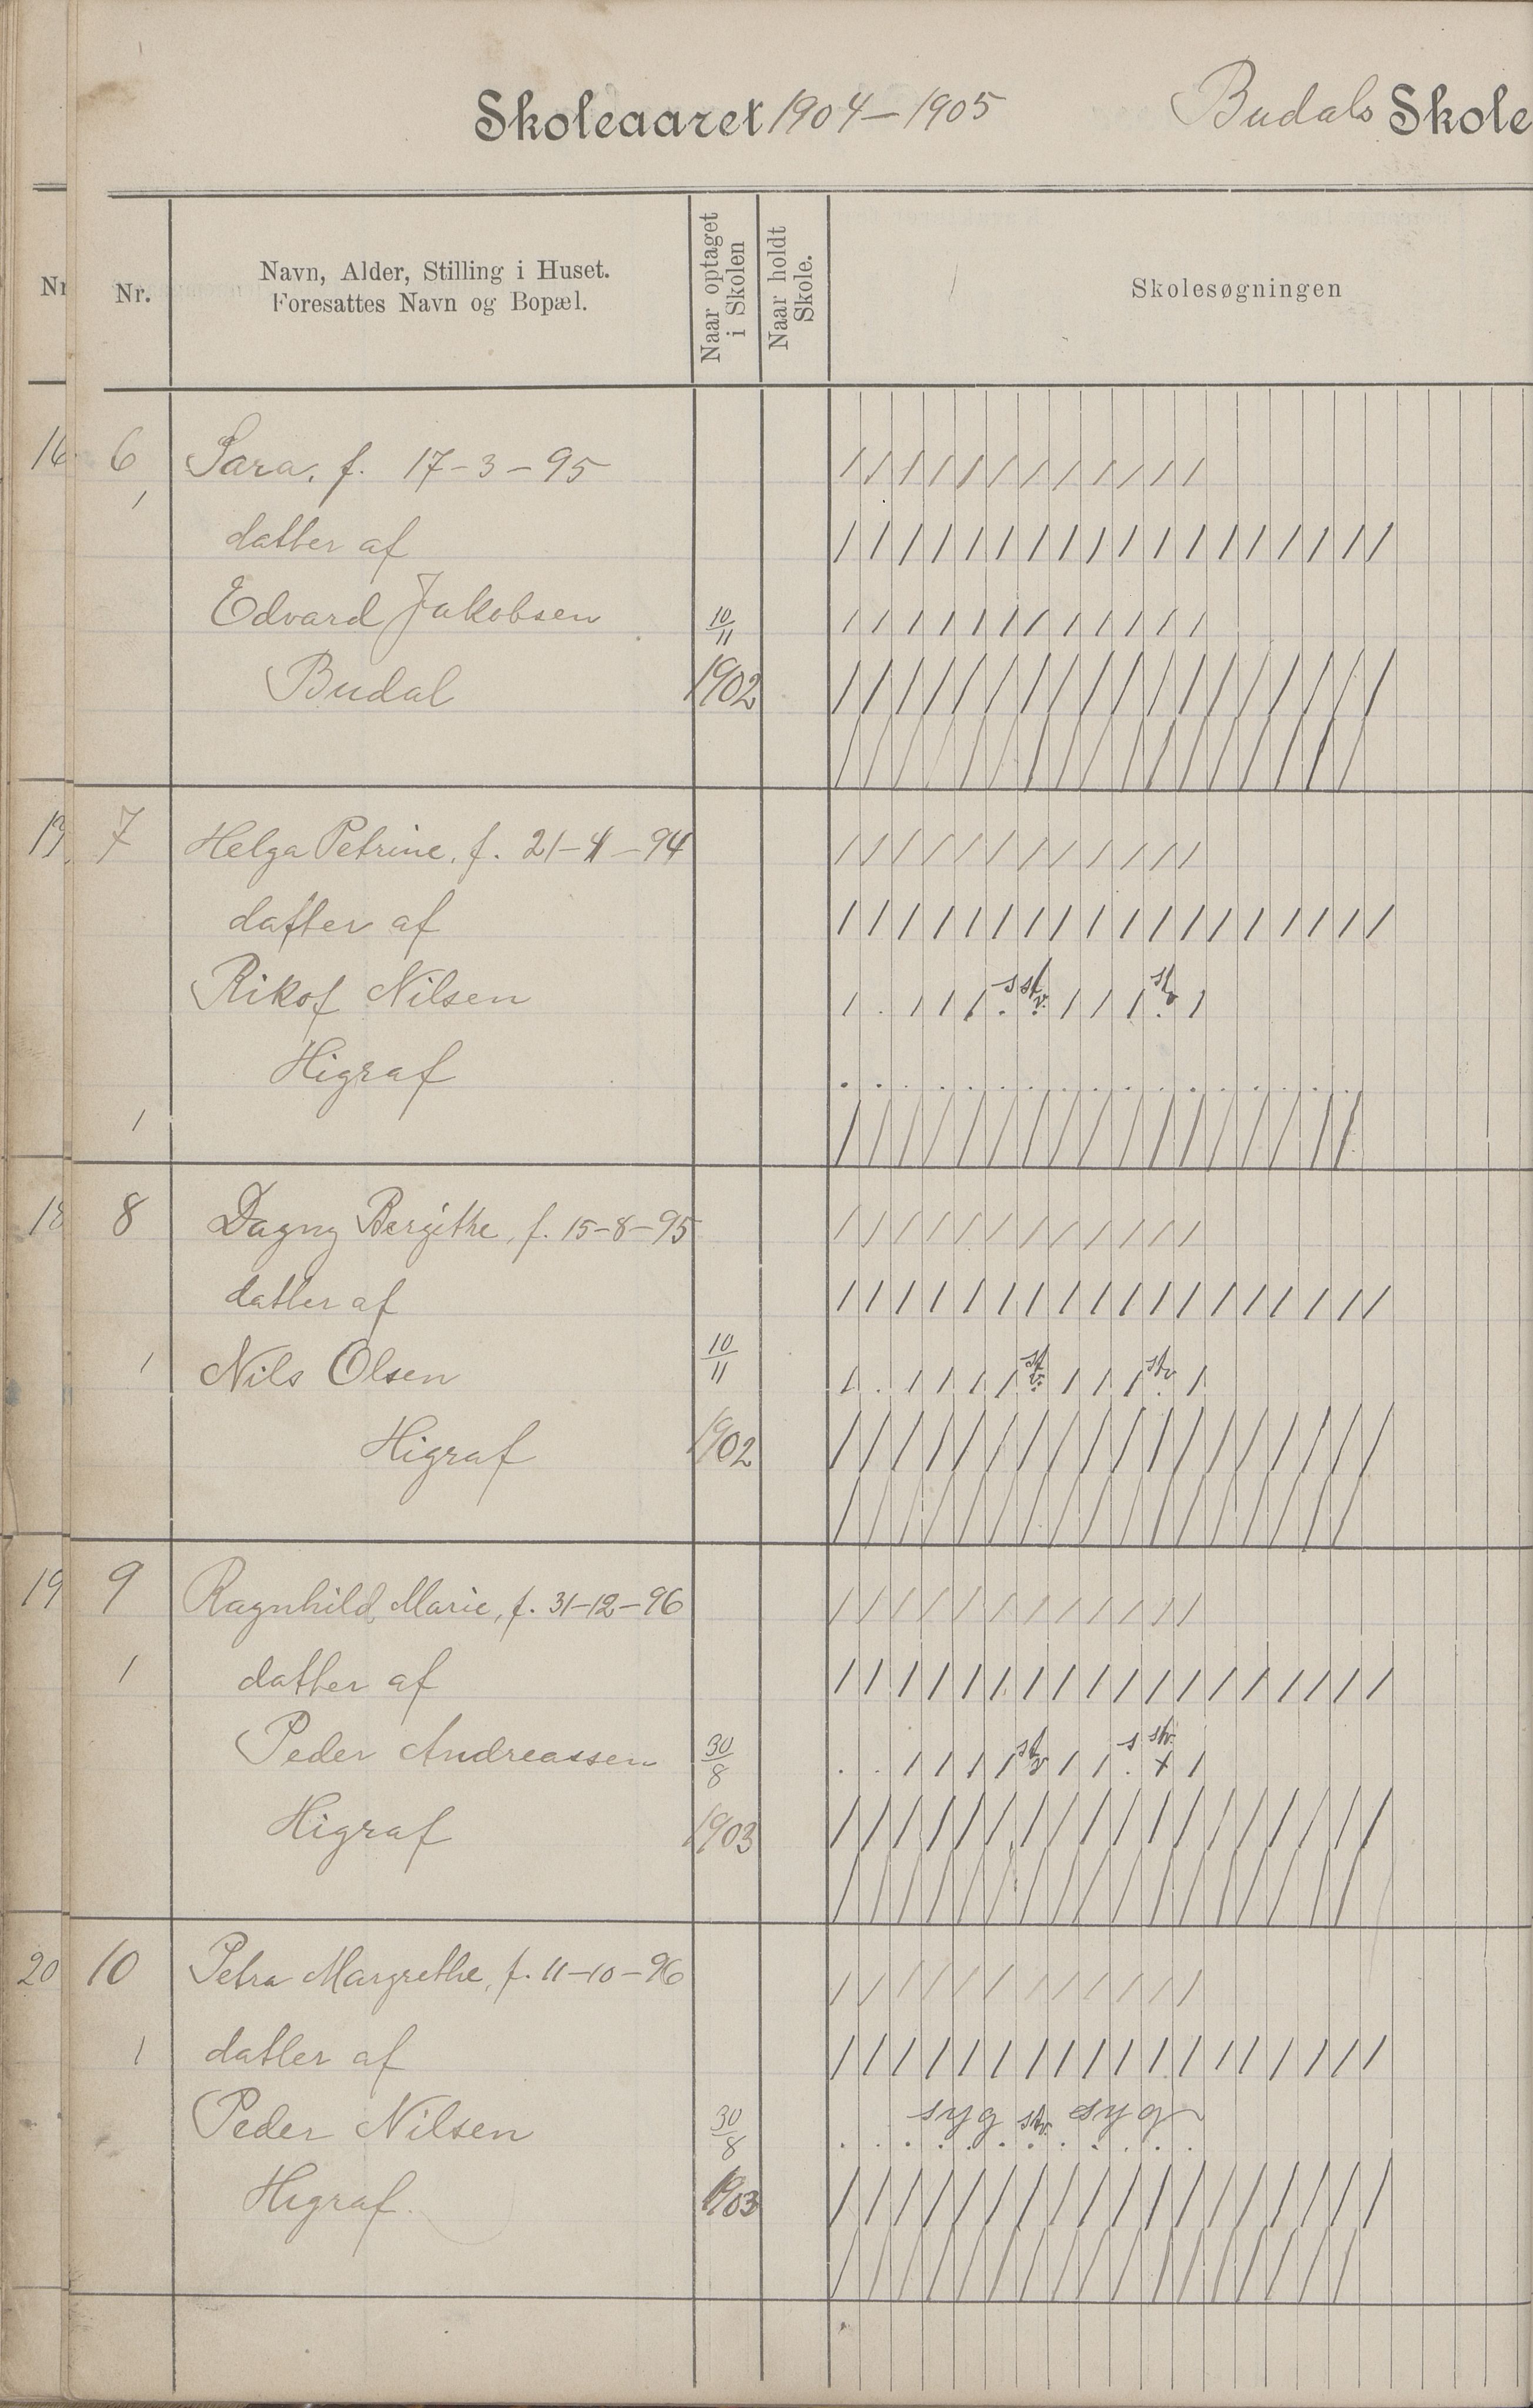 Skoleaaret 1904-1905
Budals Skole
Nr.
Navn, Alder, Stilling i Huset.
Foresattes Navn og Bopæl.
Naar optaget
i Skolen
Naar holdt
Skole.
Skolesøgningen
16
6 Sara. f. 17-3-95
datter af
Edvard Jakobsen 10/11
Budal 1902
17
7 Helga Petrine, f. 21-11-94
datter af
Rikof Nilsen s stv. stv
Higraf
18
8 Dagny Bergithe, f. 15-8-95
datter af
Nils Olsen 10/11 stv. stv
Higraf 1902
19
9 Ragnhild Marie, f. 31-12-96
datter af
Peder Andreassen 30/8 stv s stv.
Higraf 1903
20
10 Petra Margrethe, f. 11-10-96
datter af
Peder Nilsen 30/8 syg stv. syg
Higraf. 1903